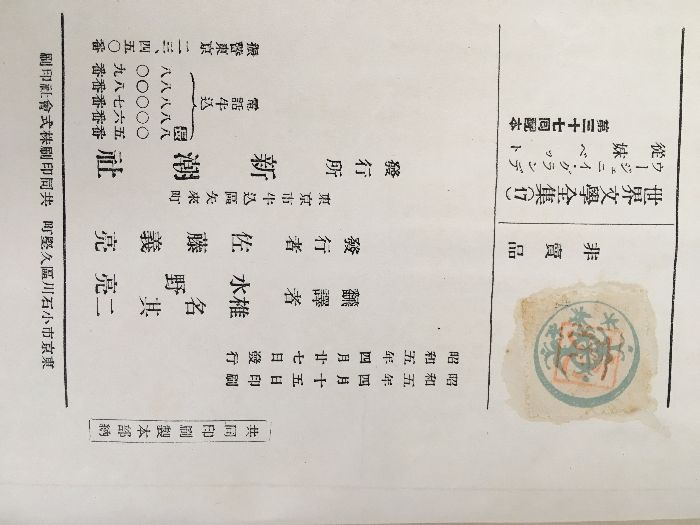 非賣品
世界文學全集(17)
ウージェニイ・グランデ
從妹ベット
第三十七回配本
昭和五年四月十五日印刷
昭和五年四月廿七日發行
飜譯者
椎名其二
水野亮
發行者 佐藤義亮
東京市牛込區矢來町
發行所 新潮社
電話牛込
八〇五番
八〇六番
八〇七番
八〇八番
八〇九番
振替東京二三、四五〇番
東京市小石川區久堅町 共同印刷株式會社印刷
共同印刷製本部納